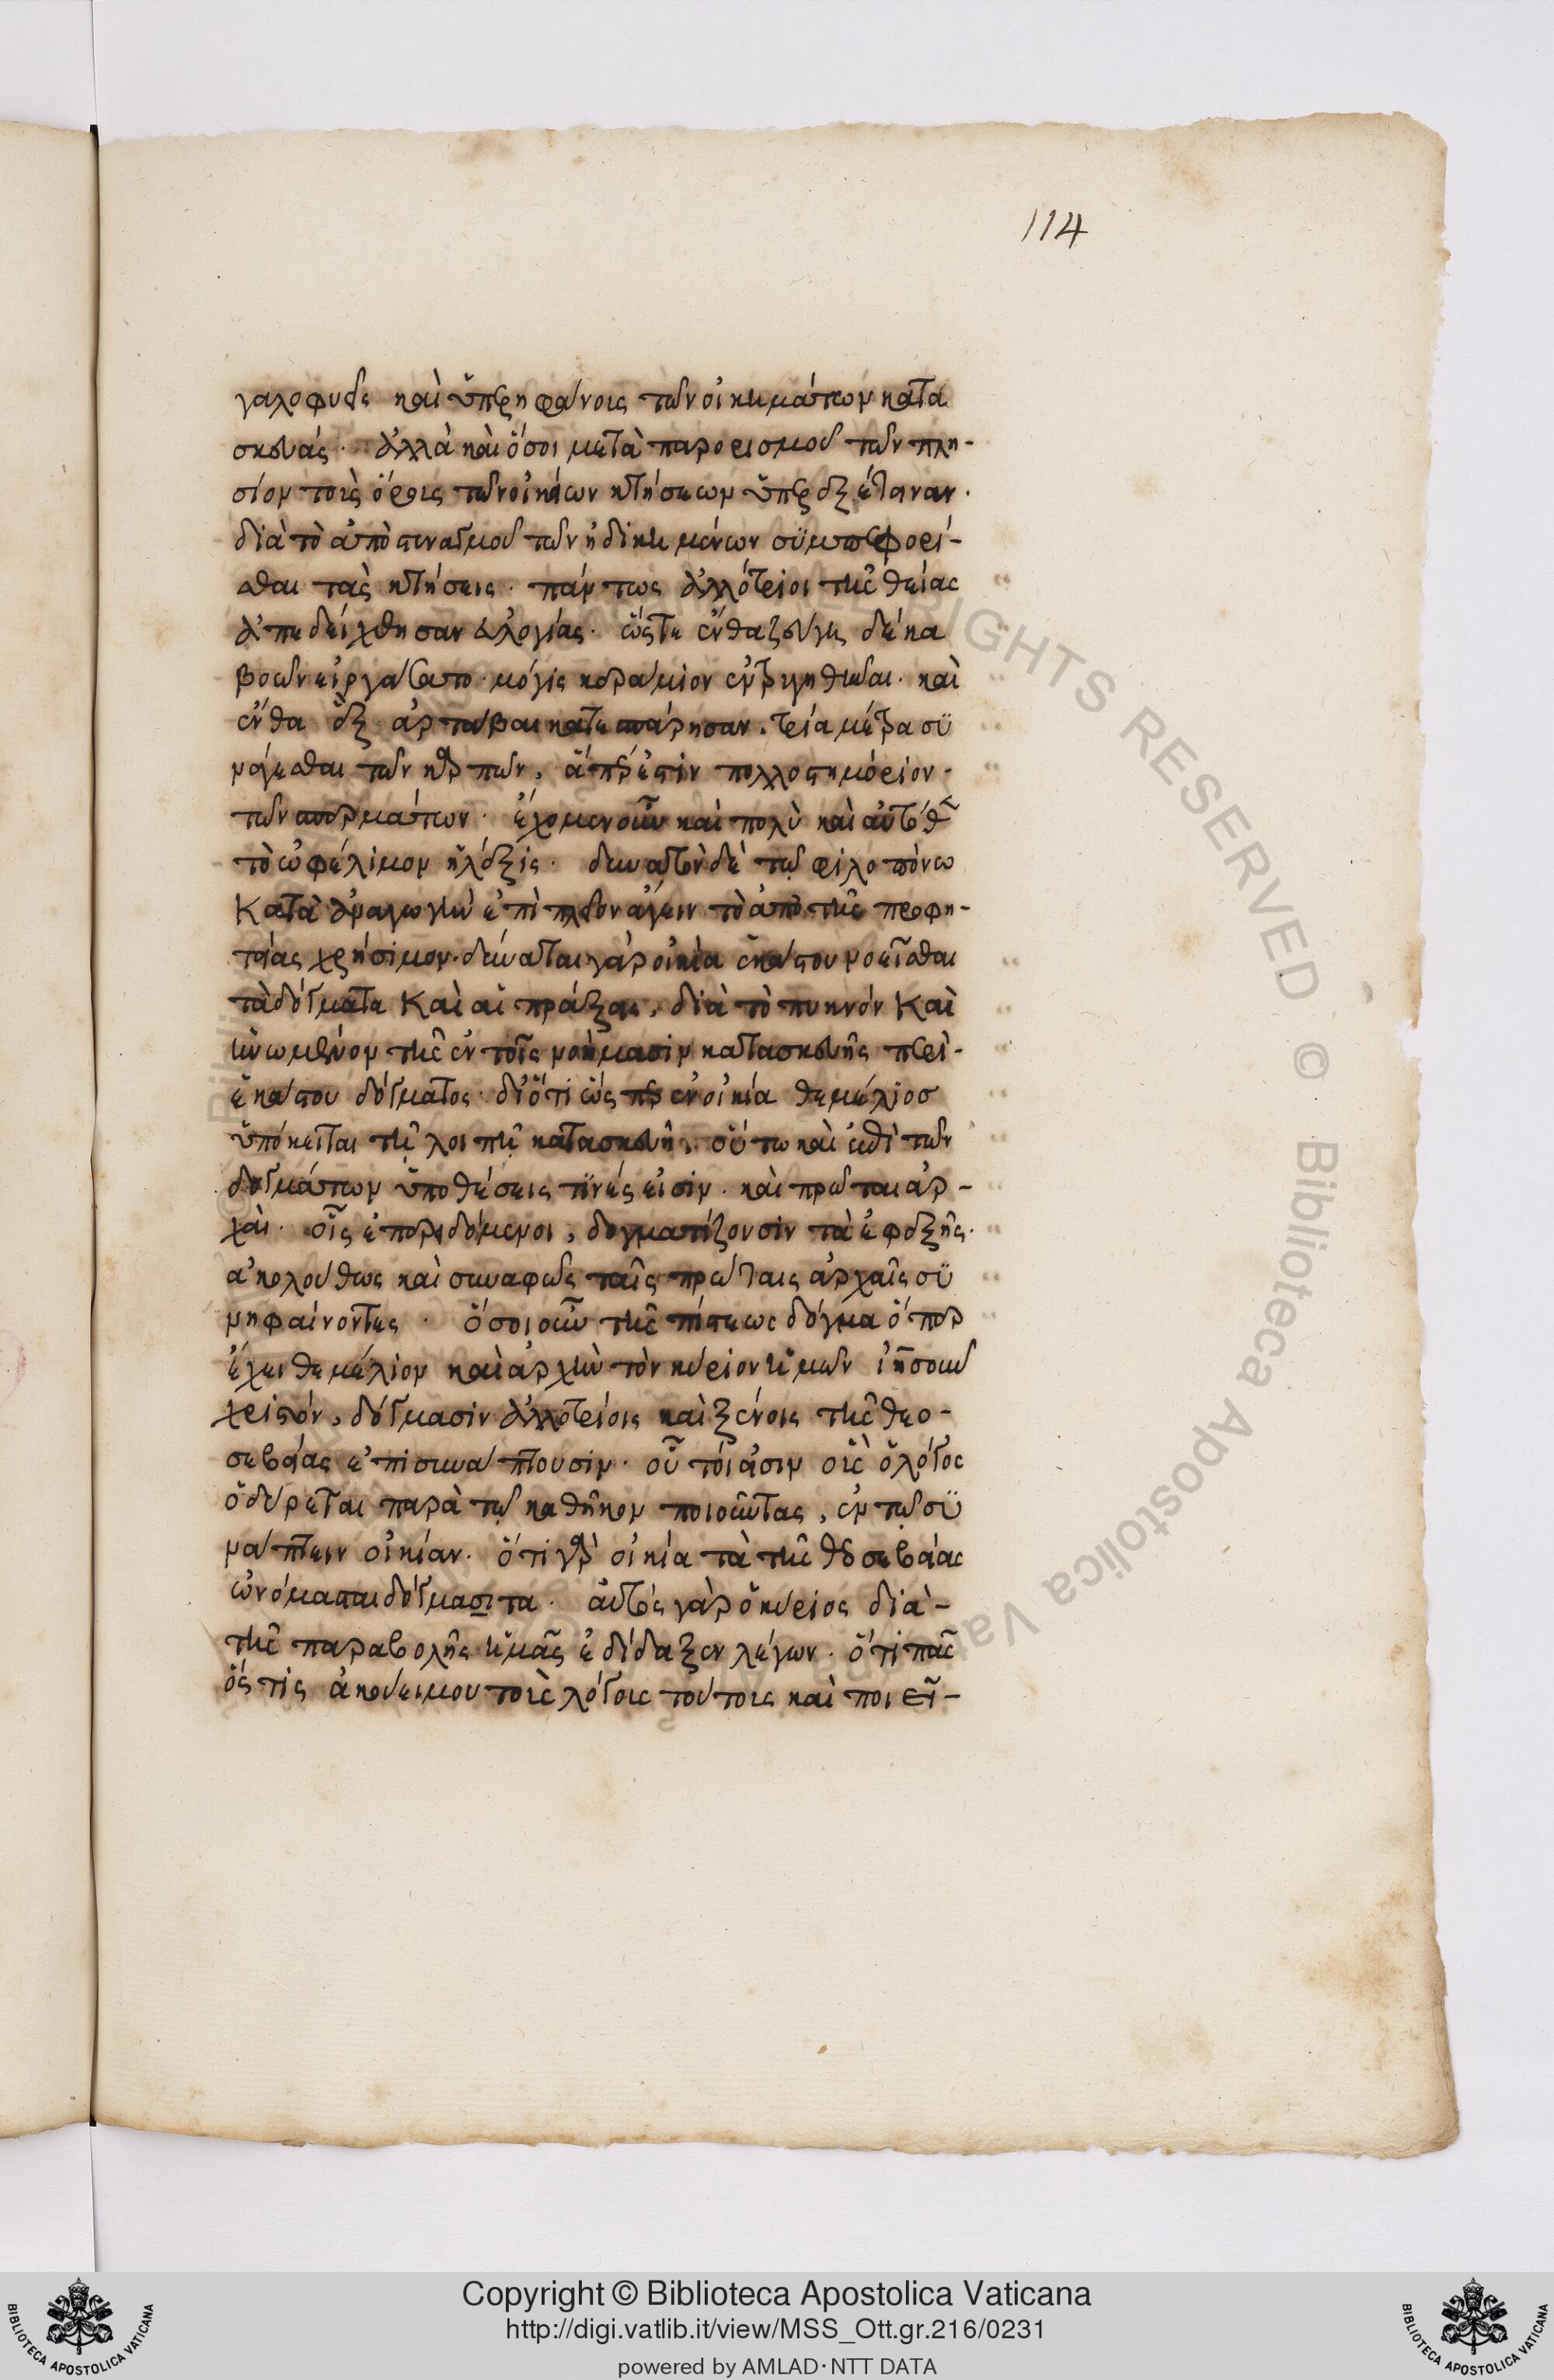 114
γαλοφυεῖς καὶ ὑπερηφάνοις τῶν οἰκημάτων κατα
σκευάς· ἀλλὰ καὶ ὅσοι μετὰ παρορισμοῦ τῶν πλη-
σίον τοῖς ὅροις τῶν οἰκείων κτήσεων ὑπερεξέτειναν·
διὰ τὸ ἀπὸ στεναγμοῦ τῶν ἠδικημένων συμπεφορῆ-
σθαι τὰς κτήσεις· πάντως ἀλλότριοι τῆς θείας
ἀπεδείχθησαν εὐλογίας· ὥστε ἔνθα ζεύγη δέκα
βοῶν εἰργάσατο· μόγις κεράμιον ἐντρυγηθῆναι· καὶ
ἔνθα ἓξ ἀρτάβαι κατεσπάρησαν, τρία μέτρα συ
νάγεσθαι τῶν καρπῶν, ἅπερ ἐστὶν πολλοστημόριον·
τῶν σπερμάτων· ἔχομεν οὖν καὶ πολὺ καὶ αὐτόθεν
τὸ ὠφέλιμον ἡ λέξις· δυνατὸν δὲ τῷ φιλοπόνω
Κατὰ ἀναγωγὴν ἐπὶ πλέον ἄγειν τὸ ἀπὸ τῆς προφη-
τείας χρήσιμον· δύναται γὰρ οἰκία ἑκάστου νοεῖσθαι
τὰ δόγματα Καὶ αἱ πράξεις, διὰ τὸ πυκνὸν Καὶ
ἡνωμένον τῆς ἐν τοῖς νοήμασιν κατασκευῆς περὶ-
ἑκάστου δόγματος· διότι ὥσπερ ἐν οἰκία θεμέλιος
ὑπόκειται τῇ λοιπῇ κατασκευῇ, οὕτω καὶ ἐπὶ τῶν
δογμάτων ὑποθέσεις τινές εἰσιν· καὶ πρῶται ἀρ-
χαὶ· οἷς ἐπερειδόμενοι, δογματίζουσιν τὰ ἐφεξῆς·
ἀκολούθως καὶ συναφῶς ταῖς πρώταις ἀρχαῖς συ
μηφαίνοντες · ὅσοι οὖν τῆς πίστεως δόγμα ὅπερ
ἔχει θεμέλιον καὶ ἀρχὴν τὸν κύριον ἡμῶν ἰησοῦν
χριστόν, δόγμασιν ἀλλοτρίοις καὶ ξένοις τῆς θεο-
σεβείας ἐπισυνάπτουσιν· οὗτοί εἰσιν οἷς ὁ λόγος
ὀδύρεται παρὰ τῷ καθῆκον ποιοῦντας, ἐν τῷ συ
νάπτειν οἰκίαν· ὅτι γὰρ οἰκία τὰ τῆς θεοσεβείας
ὠνόμασται δόγμασιτα· αὐτὸς γὰρ ὁ κύριος διὰ-
τῆς παραβολῆς ἡμᾶς ἐδίδαξεν λέγων· ὅτι πᾶς
ὅστις ἀκούει μου τοῖς λόγοις τούτοις καὶ ποιεῖ-
Copyright © Biblioteca Apostolica Vaticana
http://digi.vatlib.it/view/MSS_Ott.gr.216/0231
powered by AMLAD·NTT DATA